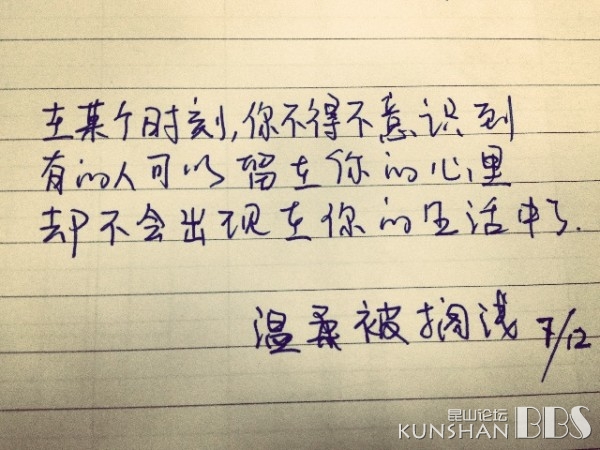 在某个时刻,你不得不意识到
有的人可以留在你的心里
却不会出现在你的生活中了.
温柔被搁浅 7/12
昆山论坛
KUNSHAN BBS